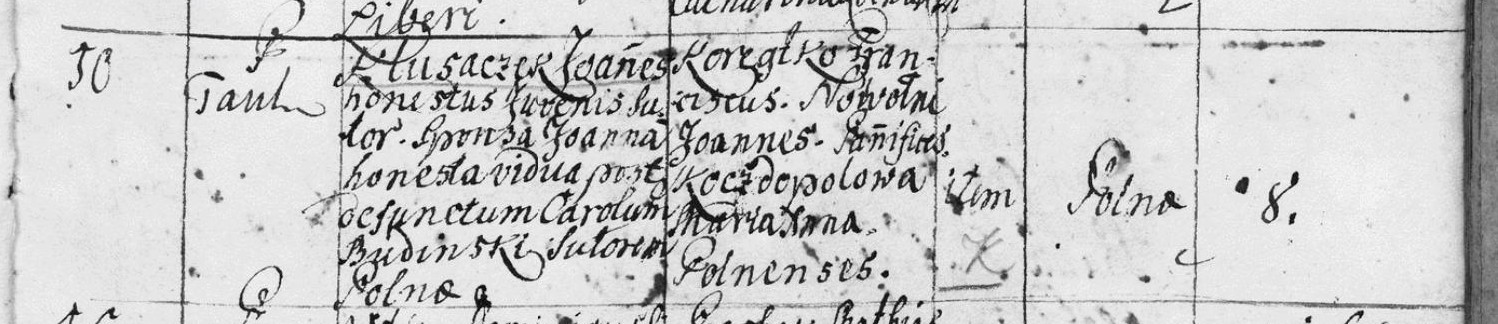 Liberi.
10
P
Paul
Klusaczek Joañes
honestus Juvenis su,
tor. Sponsa Joanna
honesta vidua post
defunctum Carolum
Budinski Sutorem
Polnæ.
Koregtko Fran-
ciscus. Nowotni
Joannes. Pañifices.
Koczdopolowa
Marianna.
Polnenses.
item
K
Polnæ
8.
P